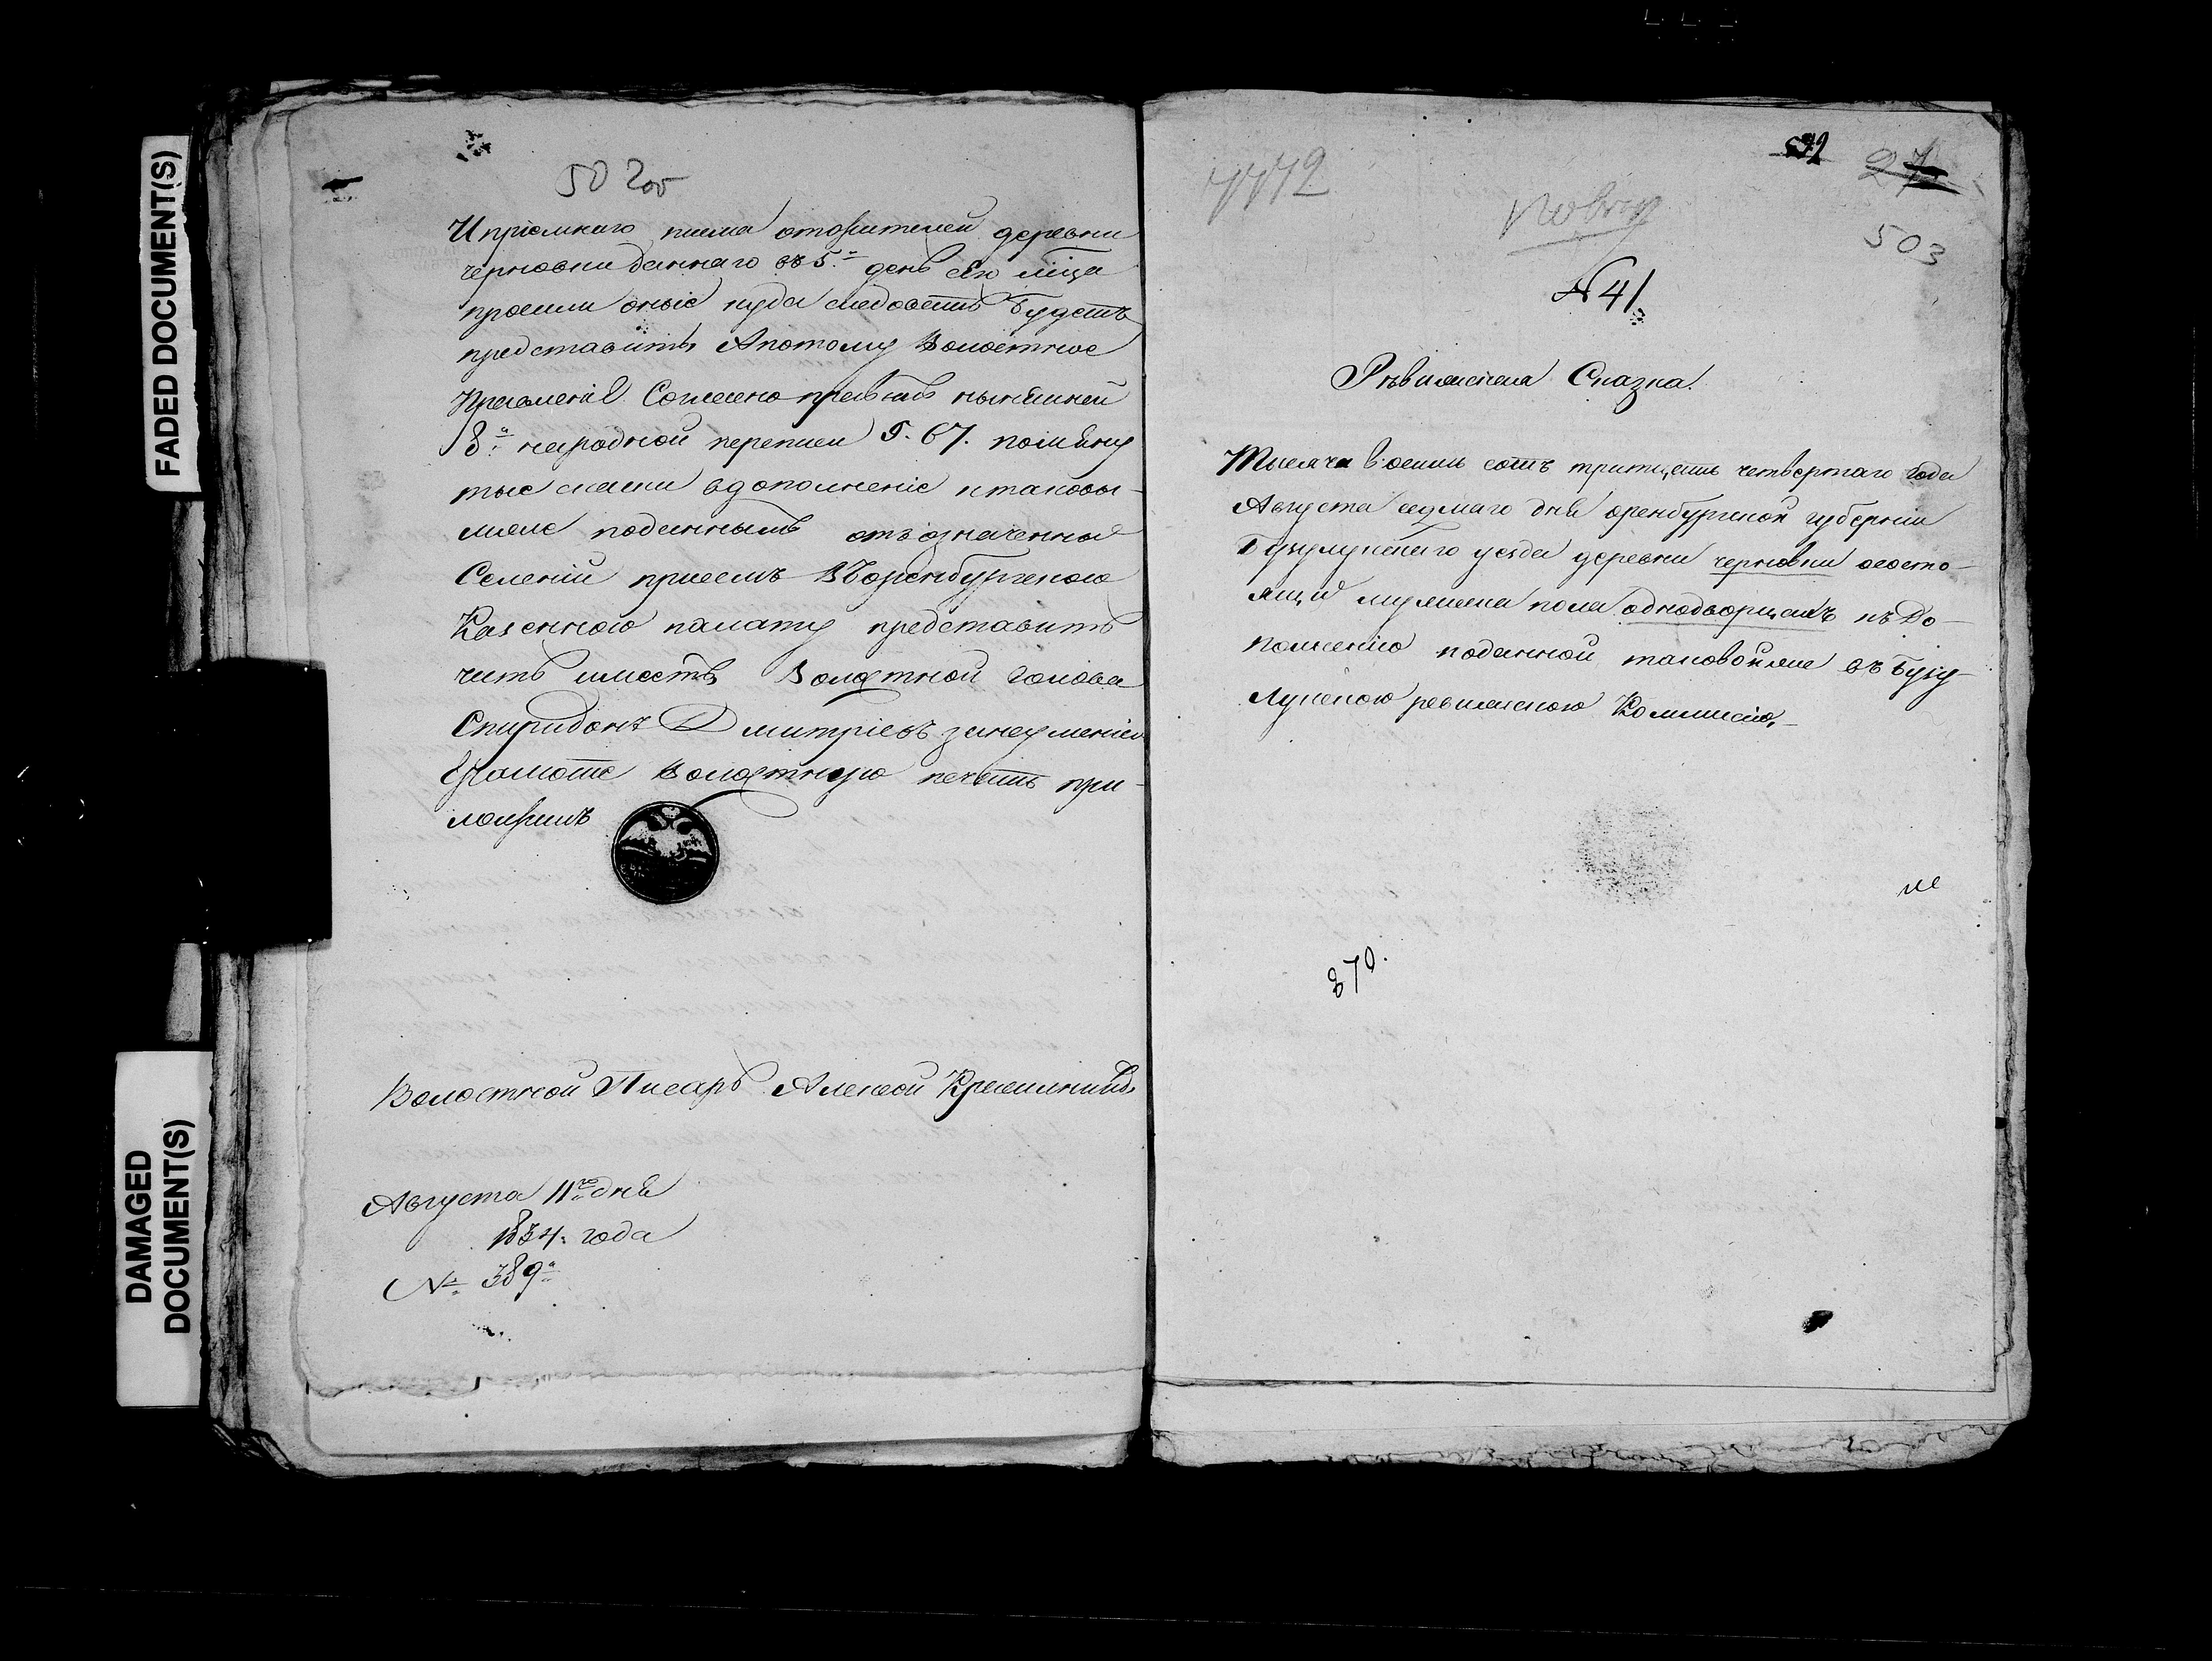 FADED DOCUMENT(S)
DAMAGED
DOCUMENT(S)
502 об
И пріемнаго писма отожителей деревни
черновки даннаго въ 5й день сего мца
просили оныѣ куда следоветь будетъ
представить, Апотому волостное
Правленіе Согласно правилъ нынѣшней
8й народной переписи § 67. помяну
тые скаски вдополненіе ктаковы-
мже поданнымъ отъ означенныхъ
Селеній присемъ въ Оренбургскою
Казенною палату представить
честь имеетъ Волостной голова
Спиридонъ Дмитріевъ занеуменіем
Грамоте волостную печать при-
ложилъ
Волостной Писарь Алексей
Августа 11го дня
1834. года
№ 389й
1772
27
503
№ 41
Ревижская Сказка.
Тысяча восемь сотъ тритцать четвертаго года
Августа седмаго дня оренбургской губерніи
Бузулуцкаго уезда деревни черновки ососто-
ящих мужеска пола однодворцахъ къ до-
полненію поданной таковойже въ бузу-
лускою ревижскою Коммисію.
370.